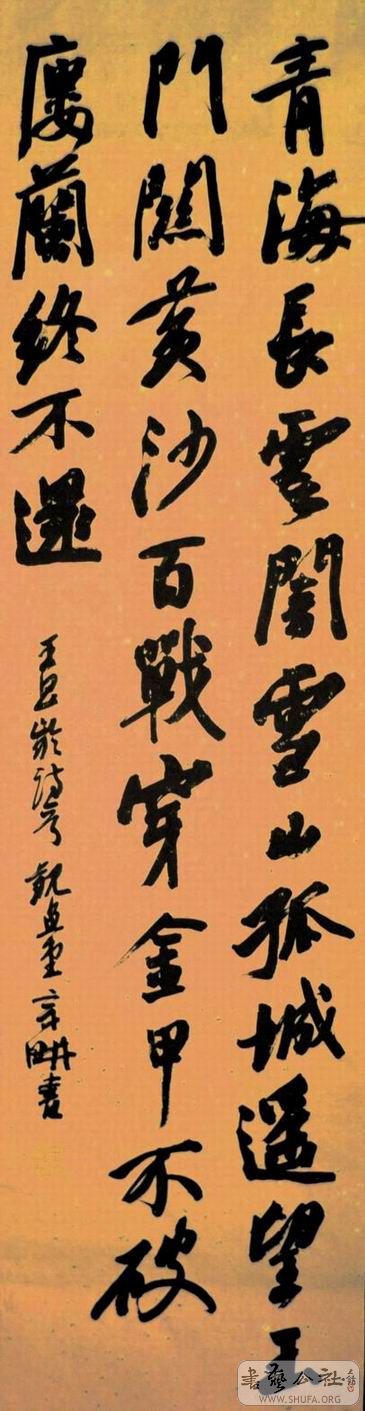 青海長雲闇雪山孤城遥望玉
門關黄沙百戰穿金甲不破
廔蘭終不還
王昌齡詩
書
書藝公社
WWW.SHUFA.ORG